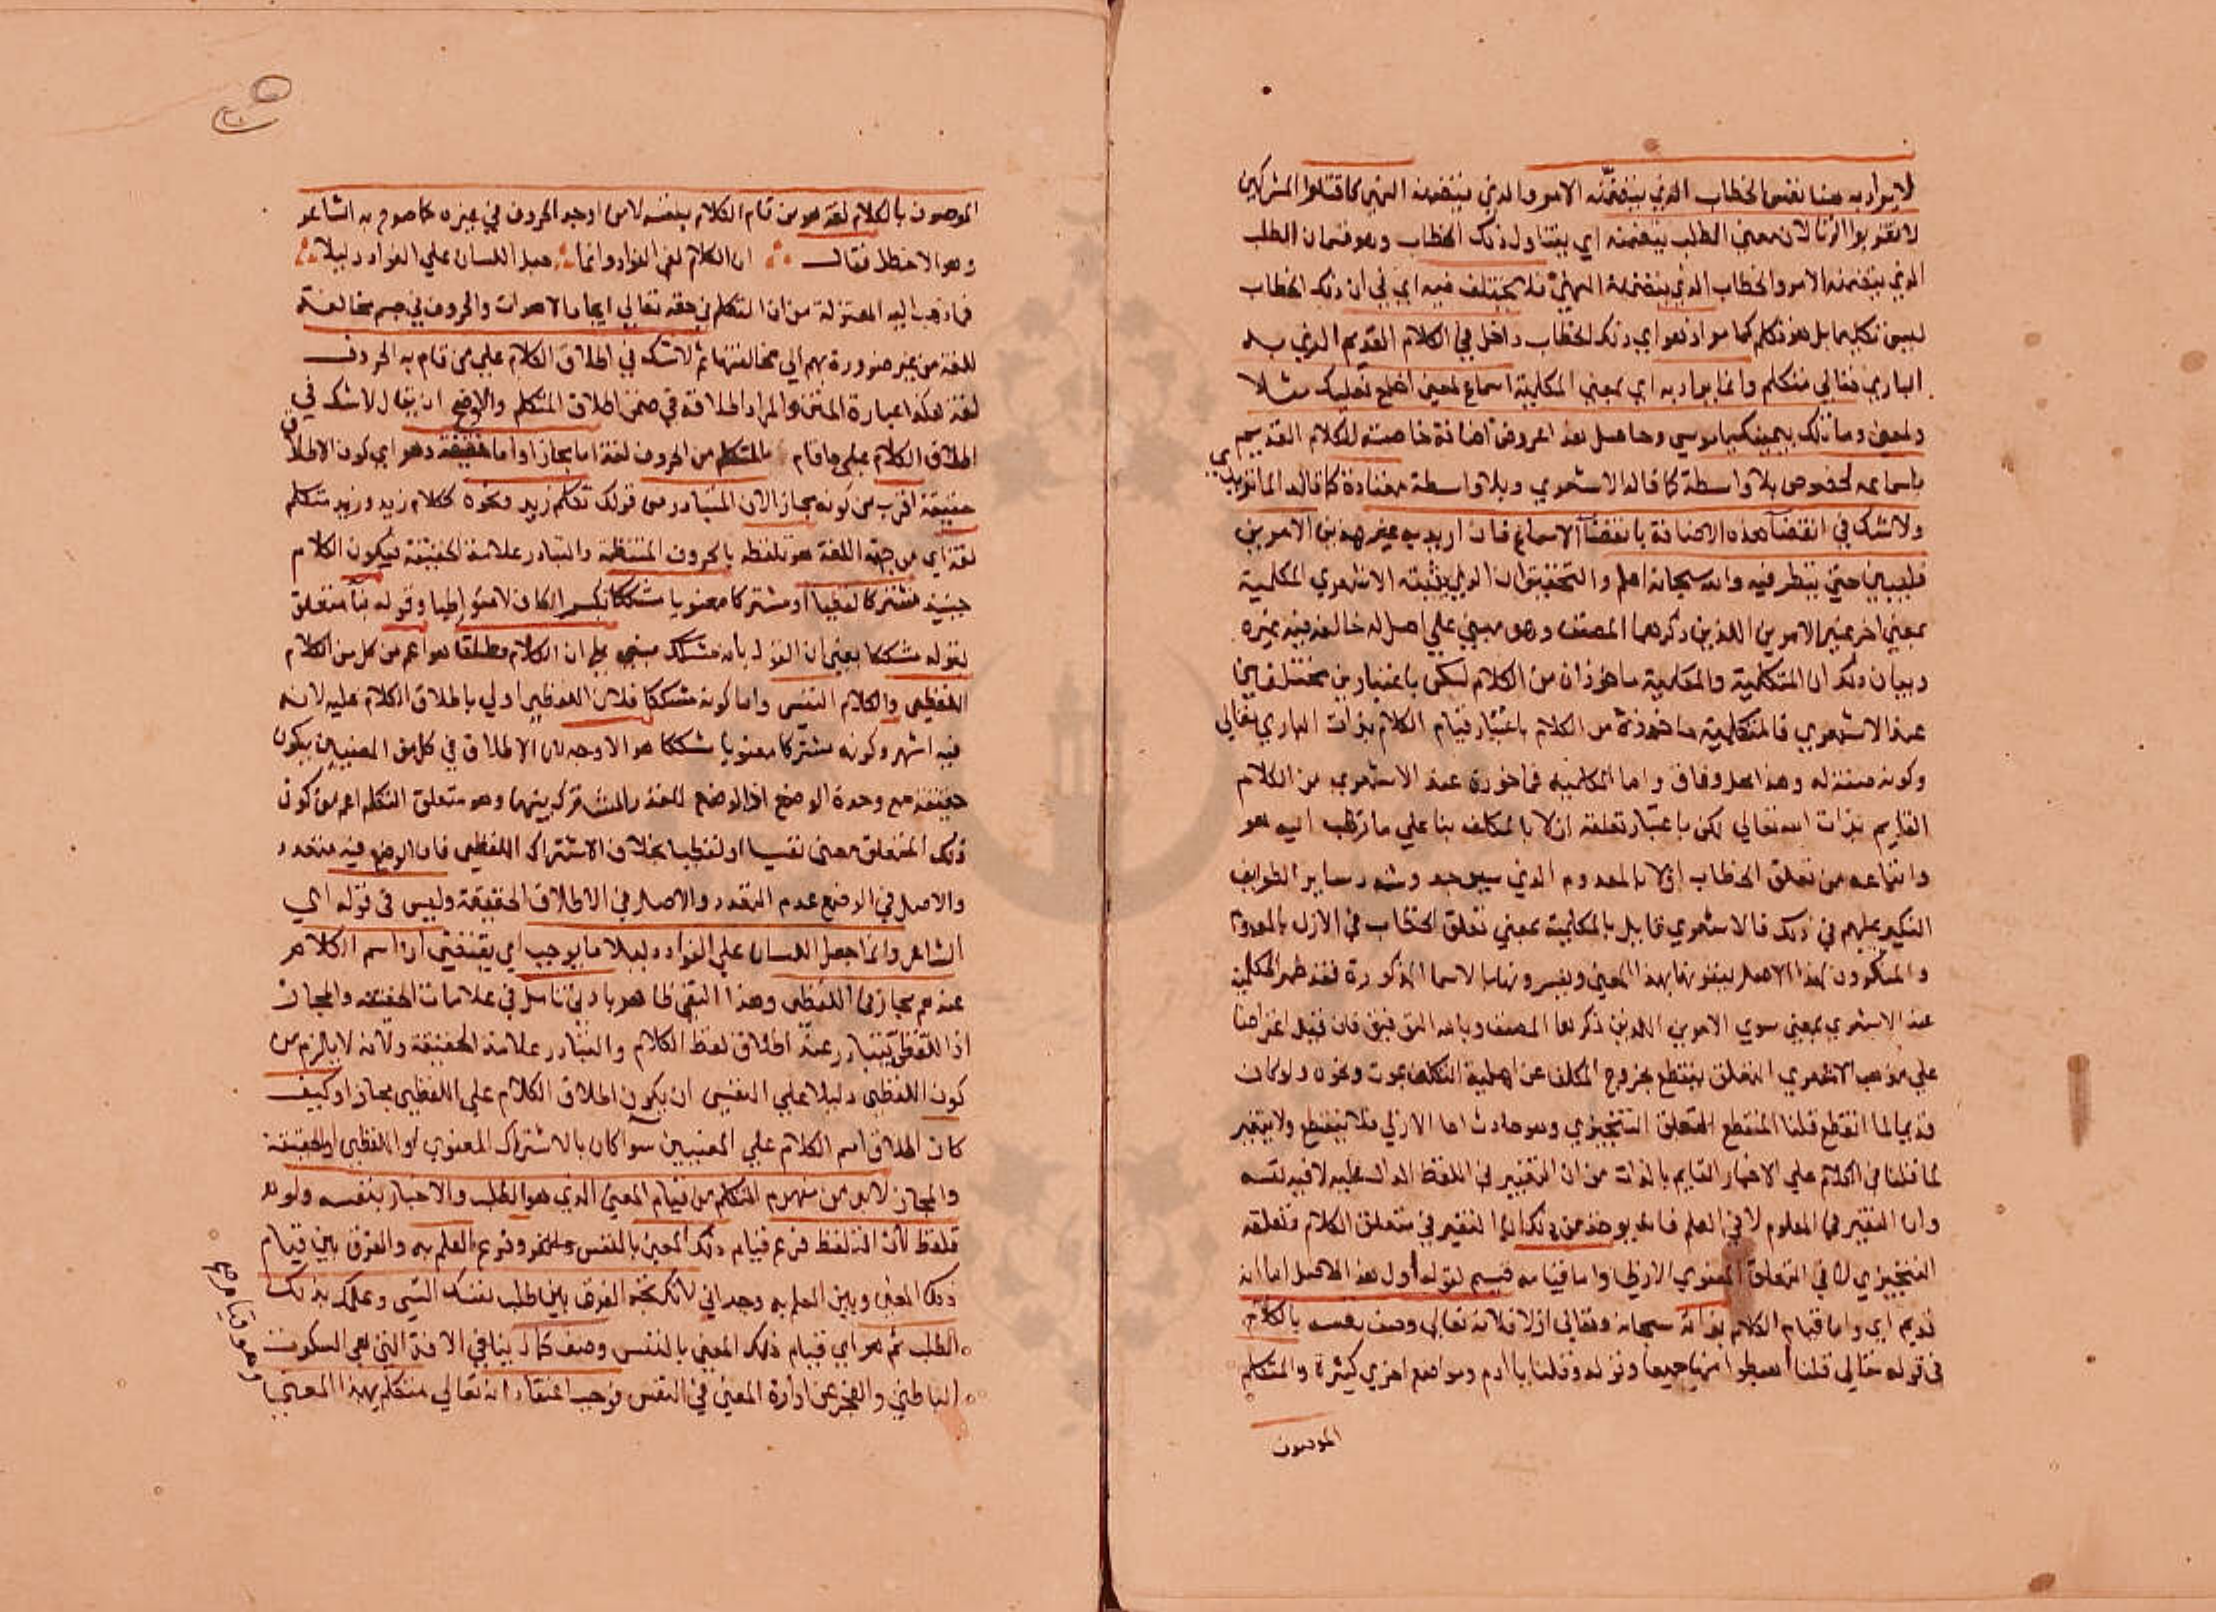 لا يراد به هنا نفس الخطاب الذي يتضمنه الامر والذي يتضمنه النهي كاقتلوا المشركين
لا تقربوا الزنا لان معنى الطلب يتضمنه اي يتناول ذلك الخطاب وهو قسمان الطلب
الذي يتضمنه الامر والخطاب الذي يتضمنه النهي فلا يختلف فيه اي في ان ذلك الخطاب
ليس تكليما بل هو تكلم كما مر اذ هو اي ذلك الخطاب داخل في الكلام القديم الذي به
الباري تعالى متكلم وانما يراد به اي بمعنى المكلمية اسماع لمعنى اخلع نعليك مثلا
ولمعنى وما تلك بيمينك يا موسى وحاصل هذا عروض اضافة خاصة للكلام القديم
باسماعه لمخصوص بلا واسطة كما قاله الاشعري وبلا واسطة معتادة كما قاله الماتريدي
ولا شك في انقضا هذه الاضافة بانقضا الاسماع فان اريد به غير هذين الامرين
فليبين حتى ينظر فيه والله سبحانه اعلم والتحقيق ان الذي يثبته الاشعري المكلمية
بمعنى اخر غير الامرين اللذين ذكرهما المصنف وهو مبني على اصل له خالفه فيه غيره
وبيان ذلك ان المتكلمية والمكلمية ماخوذان من الكلام لكن باعتبارين مختلفين
عند الاشعري فالمتكلمية ماخوذة من الكلام باعتبار قيام الكلام بذات الباري تعالى
وكونه صفة له وهذا محل وفاق واما المكلمية فماخوذة عند الاشعري من الكلام
القايم بذات الله تعالى لكن باعتبار تعلقه ازلا بالمكلف بنا على ما ذهب اليه هو
واتباعه من تعلق الخطاب ازلا بالمعدوم الذي سيوجد وشدد ساير الطوايف
النكير عليهم في ذلك فالاشعري قايل بالمكلمية بمعنى تعلق الخطاب في الازل بالمعدوم
والمنكرون لهذا الاصل ينفونها بهذا المعنى ويفسرونها بالاسماع المذكورة فقد ظهر المكلمية
عند الاشعري بمعنى سوى الامرين اللذين ذكرهما المصنف وبالله التوفيق فان قيل اعتراضا
على مذهب الاشعري التعلق ينقطع بخروج المكلف عن اهلية التكليف بموت ونحوه ولو كان
قديما لما انقطع قلنا المنقطع التعلق التنجيزي وهو حادث اما الازلي فلا ينقطع ولا يتغير
لما قلنا في الكلام على الاخبار القايم بالذات من ان التغيير في اللفظ الدال عليه لا فيه نفسه
وان التغير في المعلوم لا في العلم فاعلم يوخذ من ذلك ان التغير في متعلق الكلام وتعلقه
التنجيزي لا في التعلق المعنوي الازلي واما قيامه قسيم لقوله اول هذا الاصل اما انه
قديم اي واما قيام الكلام بذاته سبحانه وتعالى ازلا فلانه تعالى وصف نفسه بالكلام
في قوله تعالى قلنا اهبطوا منها جميعا وقوله وقلنا يا ادم ومواضع اخرى كثيرة والمتكلم
الموصوف
الموصوف بالكلام لغة هو من قام الكلام بنفسه لا من اوجد الحروف في غيره كما صرح به الشاعر
وهو الاخطل فقال ان الكلام لفي الفواد وانما جعل اللسان على الفواد دليلا
فما ذهب اليه المعتزلة من ان التكلم في حقه تعالى ايجاد الاصوات والحروف في جسم مخالفة
للغة من غير ضرورة بهم الى مخالفتها ثم لا شك في اطلاق الكلام على من قام به الحروف
لغة هكذا عبارة المتن والمراد اطلاقه في ضمن اطلاق المتكلم والاوضح ان يقال لا شك في
اطلاق الكلام على ما قام بالمتكلم من الحروف لغة اما مجازا واما حقيقة وهو اي كون الاطلاق
حقيقة اقرب من كونه مجازا لان المتبادر من قولك تكلم زيد ونحوه ككلام زيد وزيد متكلم
لغة اي من جهة اللغة هو تلفظه بالحروف المنتظمة والتبادر علامة الحقيقة فيكون الكلام
حينيذ مشتركا لفظيا او مشتركا معنويا مشككا بكسر الكاف لا متواطيا وقوله بنا متعلق
بقوله مشككا يعني ان القول بانه مشكك مبني على ان الكلام مطلقا هو اعم من كل من الكلام
اللفظي والكلام النفسي واما كونه مشككا فلان اللفظي اولى باطلاق الكلام عليه لانه
فيه اشهر وكونه مشتركا معنويا مشككا هو الاوجه لان الاطلاق في كل من المعنيين يكون
حقيقة مع وحدة الوضع اذ الوضع للقدر المشترك بينهما وهو متعلق التكلم اعم من كون
ذلك المتعلق معنى نفسيا او لفظيا بخلاف الاشتراك اللفظي فان الوضع فيه متعدد
والاصل في الوضع عدم التعدد والاصل في الاطلاق الحقيقة وليس في قوله اي
الشاعر وانما جعل اللسان على الفواد دليلا ما يوجب اي يقتضي ان اسم الكلام
عندهم مجاز في اللفظي وهذا النفي ظاهر بادنى تامل في علامات الحقيقة والمجاز
اذ اللفظي يتبادر عند اطلاق لفظ الكلام والتبادر علامة الحقيقة ولانه لا يلزم من
كون اللفظي دليلا على النفسي ان يكون اطلاق الكلام على اللفظي مجازا وكيف
كان اطلاق اسم الكلام على المعنيين سوآ كان بالاشتراك المعنوي او اللفظي او الحقيقة
والمجاز لا بد من مفهوم المتكلم من قيام المعنى الذي هو الطلب والاخبار بنفسه ولو بعد
تلفظ لان التلفظ فرع قيام ذلك المعنى بالنفس وهو فرع العلم به والفرق بين قيام
ذلك المعنى وبين العلم به وجداني لانك تجد الفرق بين طلب نفسك الشي وعلمك بذلك
الطلب ثم هو اي قيام ذلك المعنى بالنفس وصف كمال ينافي الافة التي هي السكوت
الباطني والعجز عن ادارة المعنى في النفس فوجب اعتقاد انه تعالى متكلم بهذا المعنى
وهو قيام